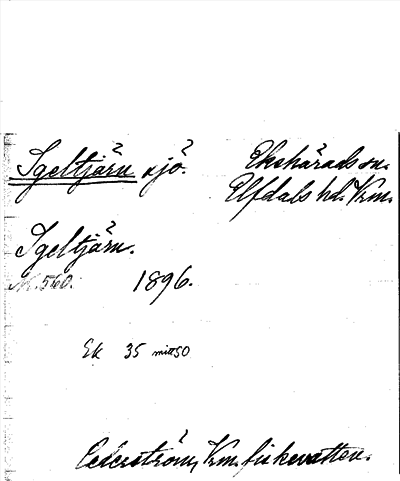 Igeltjärn sjö.
Ekshärads sn.
Elfdals hd. Vrm.
Igeltjärn.
N. 560. 1896.
Ek 35 mitt SO
Cederström, Vrm. fiskevatten.